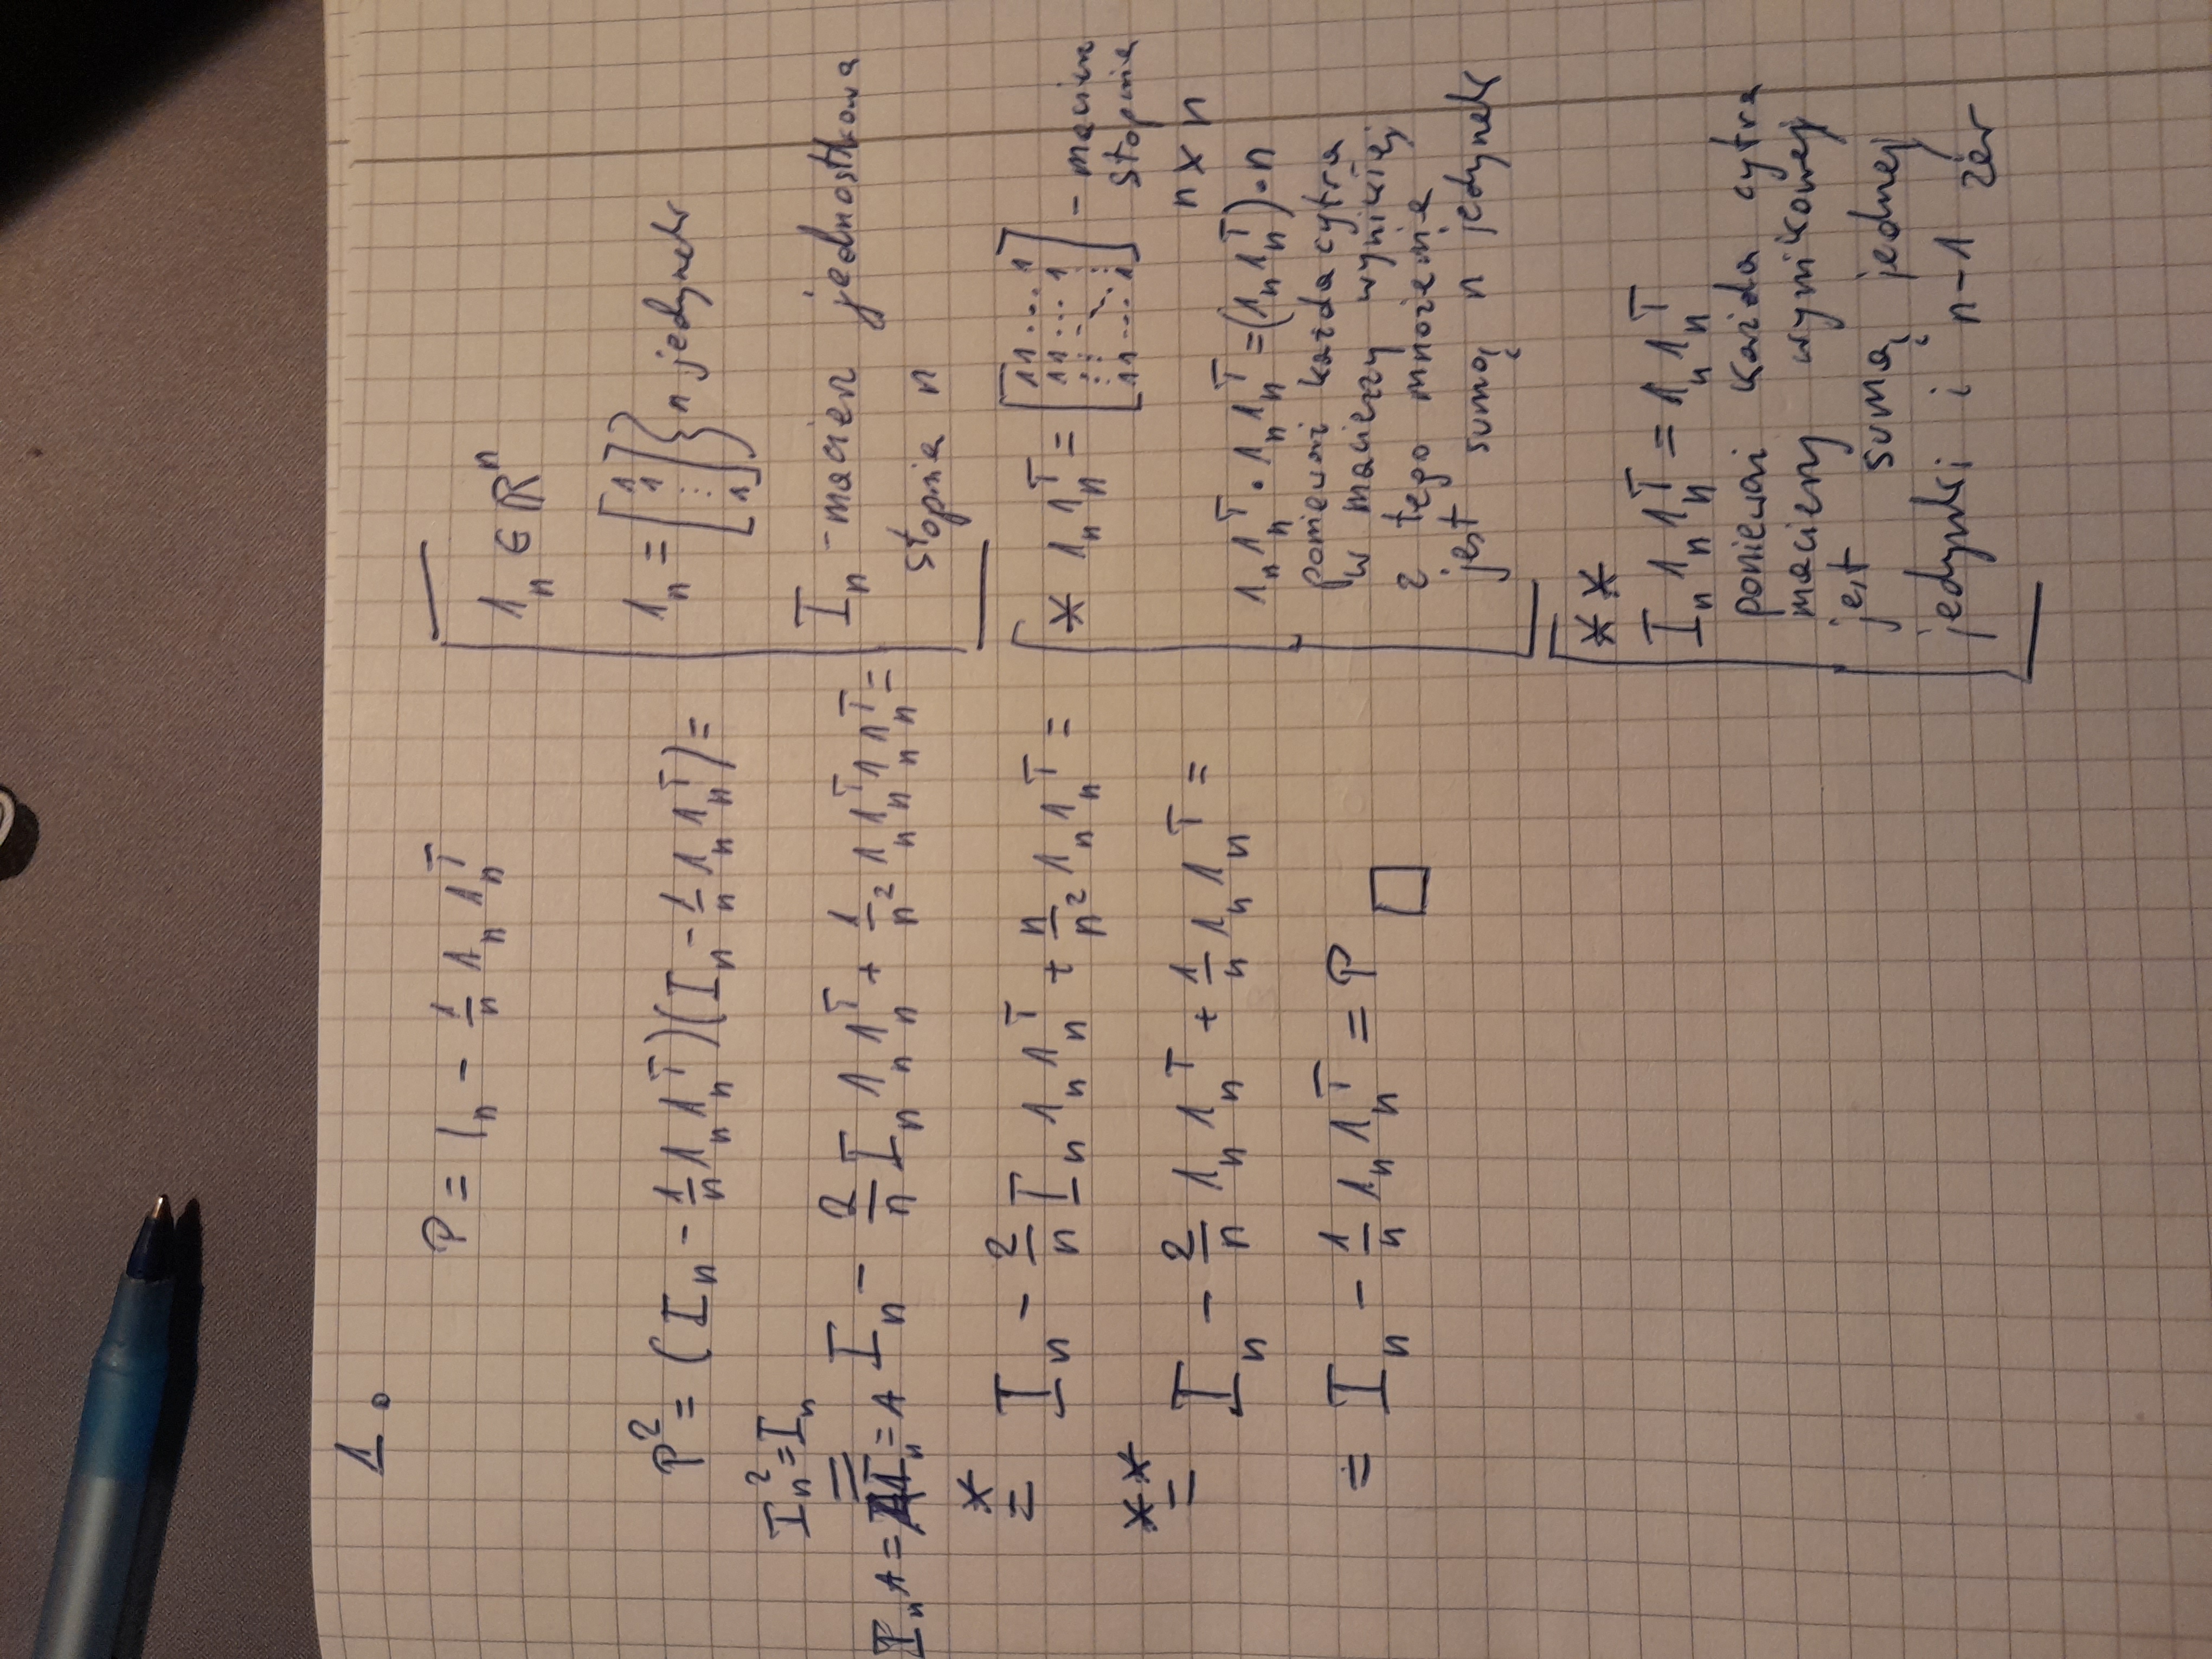 1.
P = I_n - 1/n 1_n 1_n^T
P^2 = (I_n - 1/n 1_n 1_n^T)(I_n - 1/n 1_n 1_n^T) =
I_n^2 = I_n
= I_n - 2/n I_n 1_n 1_n^T + 1/n^2 1_n 1_n^T 1_n 1_n^T =
I_n A = A I_n = A
* = I_n - 2/n I_n 1_n 1_n^T + n/n^2 1_n 1_n^T =
** = I_n - 2/n 1_n 1_n^T + 1/n 1_n 1_n^T =
= I_n - 1/n 1_n 1_n^T = P □
1_n ∈ ℝ^n
1_n = [1 1 ⋮ 1] } n jedynek
I_n - macierz jednostkowa
stopnia n
* 1_n 1_n^T = [11...1 11...1 ⋮⋮⋱⋮ 11...1] - macierz
stopnia
n x n
1_n 1_n^T · 1_n 1_n^T = (1_n 1_n^T) · n
ponieważ każda cyfra
w macierzy wynikłej
z tego mnożenia
jest sumą n jedynek
**
I_n 1_n 1_n^T = 1_n 1_n^T
ponieważ każda cyfra
macierzy wynikowej
jest sumą jednej
jedynki i n-1 zer